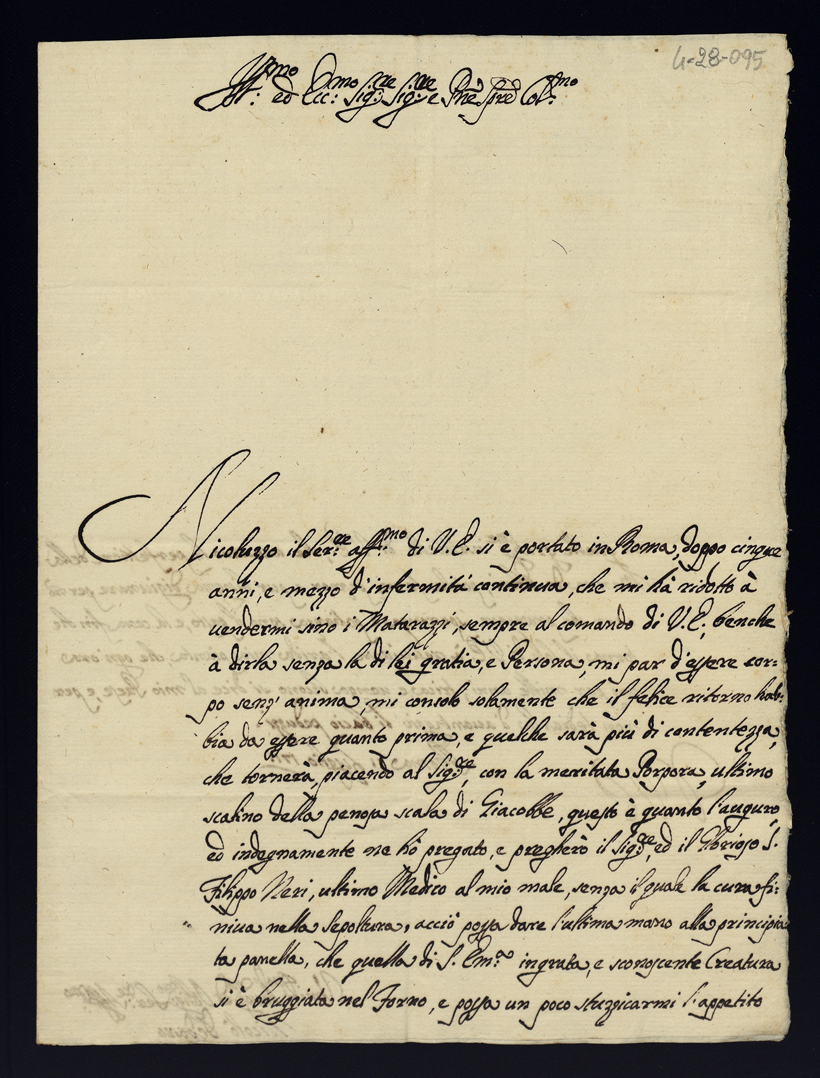 4-28-095
Ill.mo ed Ecc.mo Sig.re Sig.re e Pne Col.mo
Nicoluzzo il Ser.re aff.mo di V. E. si è portato in Roma, doppo cinque
anni, e mezzo d'infermità continua, che mi hà ridotto à
vendermi sino i Matarazzi, sempre al comando di V. E., benche
à dirla senza la di lei gratia, e Persona, mi par d'essere cor:
po senz' anima, mi consolo solamente che il felice ritorno hab:
bia da essere quanto prima, e quelche sarà più di contentezza,
che tornerà, piacendo al Sig.re, con la meritata Porpora, ultimo
scalino della penosa scala di Giacobbe, questo è quanto l'auguro,
ed indegnamente ne hò pregato, e pregherò il Sig.re, ed il Glorioso S.
Filippo Neri, ultimo Medico al mio male, senza il quale la cura fi:
niva nella sepoltura, acciò possa dare l'ultima mano alla principia
ta panella, che quella di S. Em.za ingrata, e sconoscente Creatura
si è bruggiata nel Forno, e possa un poco stuzzicarmi l'appetito